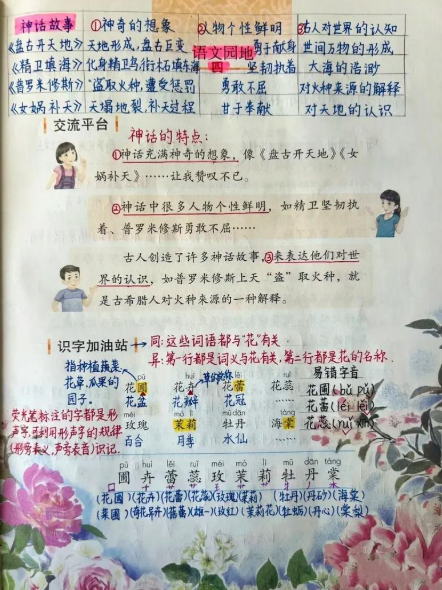 神话故事 ①神奇的想象 ②人物个性鲜明 ③古人对世界的认知
《盘古开天地》 天地形成,盘古巨变 语文园地 勇于献身 世间万物的形成
《精卫填海》 化身精卫鸟衔木石填海 四 坚韧执着 大海的浩渺
《普罗米修斯》 "盗"取火种,遭受惩罚 勇敢不屈 对火种来源的解释
《女娲补天》 天塌地裂,补天过程 甘于奉献 对天地的认识
交流平台 神话的特点:
①神话充满神奇的想象,像《盘古开天地》《女
娲补天》……让我赞叹不已。
②神话中很多人物个性鲜明,如精卫坚韧执
着、普罗米修斯勇敢不屈……
古人创造了许多神话故事,③来表达他们对世
界的认识,如普罗米修斯上天"盗"取火种,就
是古希腊人对火种来源的一种解释。
识字加油站 同:这些词语都与"花"有关
异:第一行都是词义与花有关,第二行都是花的名称.
指种植蔬菜 易错字音
花草、瓜果的 pǔ huì lěi ruǐ
园子. 花圃 花卉 花蕾 花蕊 花圃(bǔ pǔ)
花盆 花瓣 花冠 …… 花蕾(léi lěi)
荧光笔标注的字都是形 méi mò lì mǔ dān táng
声字,要利用形声字的规律 玫瑰 茉莉 牡丹 海棠 花蕊(ruí xīn)
(形旁表义,声旁表音)识记. 百合 月季 水仙 ……
pǔ huì lěi ruǐ méi mò lì mǔ dān táng
圃 卉 蕾 蕊 玫 茉 莉 牡 丹 棠
(花圃)(花卉)(花蕾)(花蕊)(玫瑰)(茉莉) (牡丹)(丹砂)(海棠)
(果圃) (蓓蕾) (玫红)(茉莉花)(牡蛎)(丹心)(棠梨)